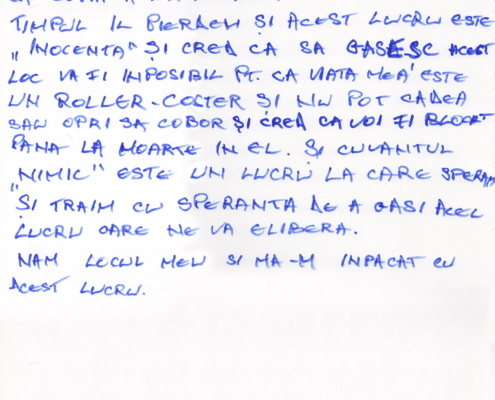 TIMPUL IL PIERDEM ȘI ACEST LUCRU ESTE
„INOCENTA" ȘI CRED CA SA GASESC ACEST
LOC VA FI IMPOSIBIL PT. CA VIATA MEA ESTE
UN ROLLER-COSTER SI NU POT CADEA
SAU OPRI SA COBOR ȘI CRED CA VOI FI BLOCAT
PANA LA MOARTE IN EL. ȘI CUVANTUL
„NIMIC" ESTE UN LUCRU LA CARE SPERAM
SI TRAIM CU SPERANTA DE A GASI ACEL
LUCRU CARE NE VA ELIBERA.
NAM LOCUL MEU SI MA-M INPACAT CU
ACEST LUCRU.